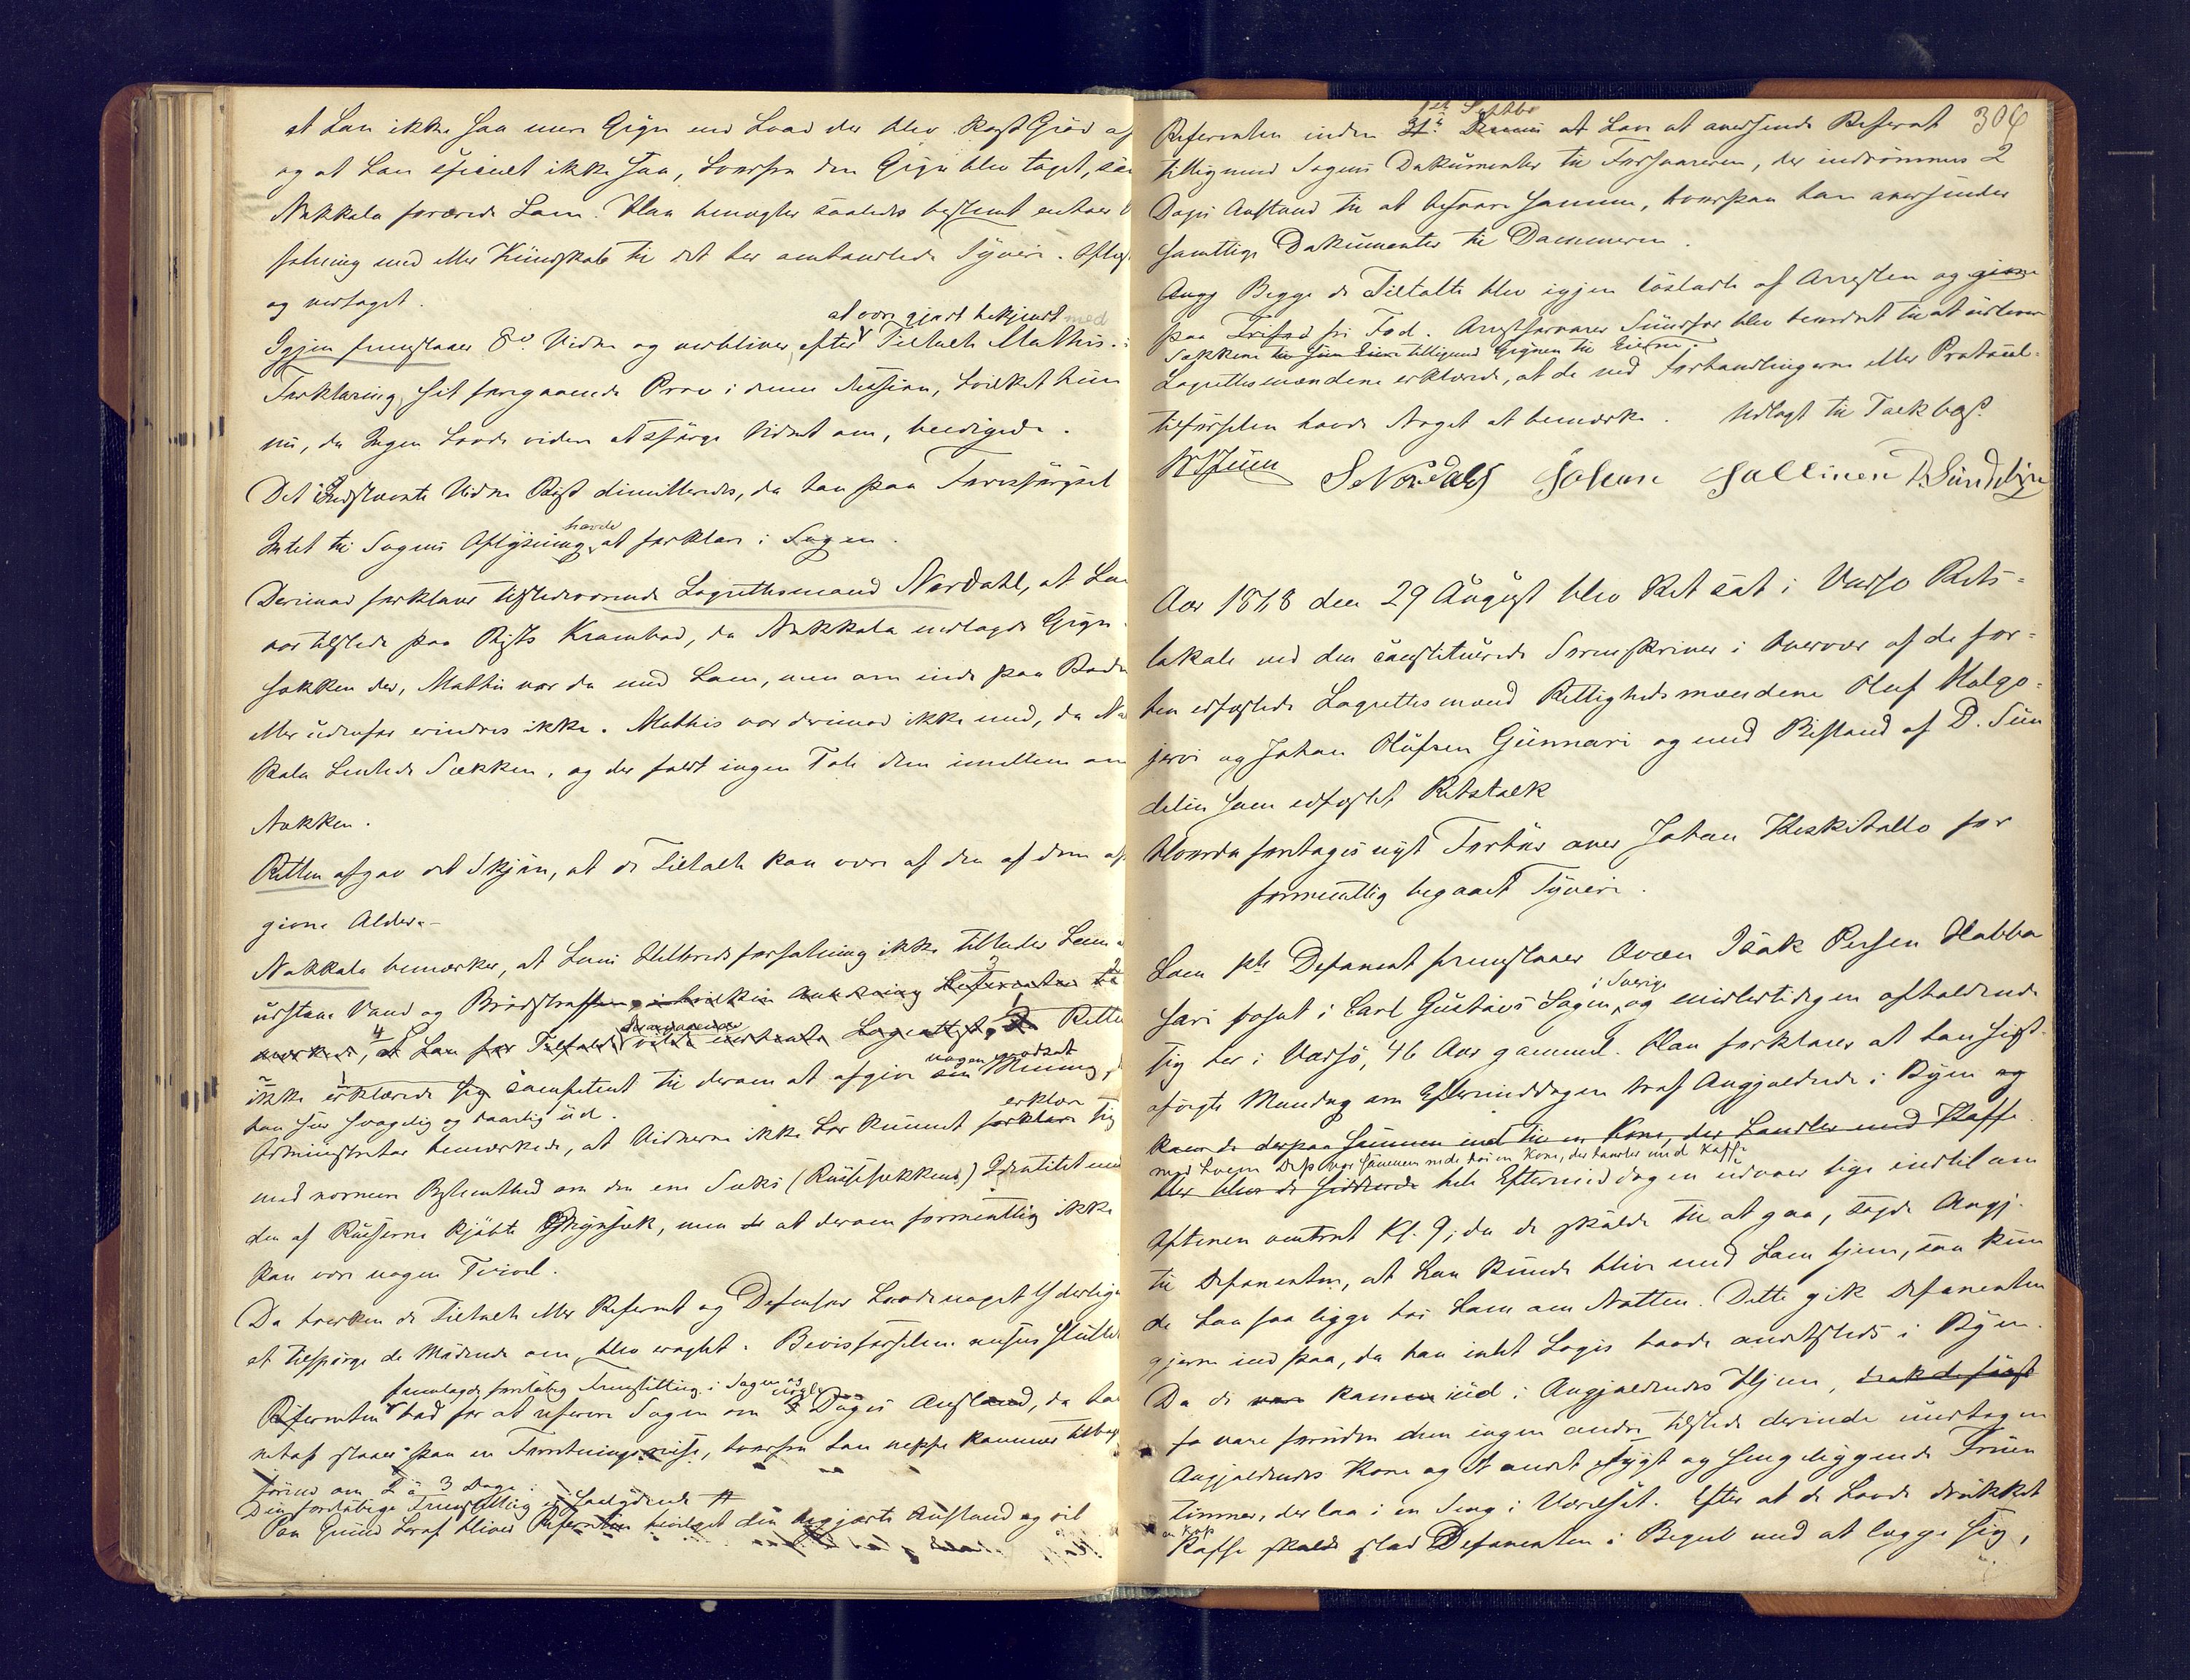 at han ikke saa mere Gryn end hvad der blev kogt Grød af
og at han specielt ikke saa, hvorfra den Gryn blev taget, som
Nakkala forærede ham. Han benægter saaledes bestemt enhver
fatning med eller Kundskab til det her omhandlede Tyveri. Oplæst
og vedtaget.
at være gjort bekjendt med
Igjen fremstaaer 8de Vidne og vedbliver, efter Tiltalte Mathis
Forklaring, sit foregaaende Prov i denne Session, hvilket hun
nu, da Ingen havde videre at spørge Vidnet om, beedigede.
Det Indstevnte Vidne Rist dimitteredes, da han paa Forespørgsel
havde
Intet til Sagens Oplysning at forklare i Sagen.
Derimod forklarer tilstedeværende Lagrettesmand Nordahl, at han
var tilstede paa Rists Krambod, da Nakkala modtog Gryn
sækken der, Mathis var da med ham, men om inde paa Boden
eller udenfor erindres ikke. Mathis var derimod ikke med, da Nak
kala hentede Sækken, og der faldt ingen Tale dem imellem om
Sækken.
Retten afgav det Skjøn, at de Tiltalte kan være af den af dem op
givne Alder.
Nakkala bemærker, at hans Helbredsforfatning ikke tillader ham at
udstaae Vand og Brødstraffen, i hvilken Anledning Referenten be
mærkede, at han for Tilfældet vilde indhente Lægeattest, Retten
nogen modsat
ikke erklærede sig competent til derom at afgive sin Mening,
han ser svagelig og daarlig ud.
erklære
Administrator bemærkede, at Vidnerne ikke har kunnet forklare sig
med nærmere Bestemthed om den ene Sæks (Russesækkens) Identitet med
den af Russerne kjøbte Grynsæk, men at derom formentlig ikke
kan være nogen Tvivl.
Da hverken de Tiltalte eller Referent og Defensor havde noget Yderligere
at tilspørge de Mødende om, blev eragtet: Bevisførselen ansees sluttet
fremlagde foreløbig Fremstilling i Sagen og
Referenten bad for at referere Sagen om Dages Anstand, da han
netop staaer paa en Forretningsreise, hvorfra han neppe kommer tilbage
førend om 2 à 3 Dage.
Den foreløbige Fremstilling er saalydende
Paa Grund heraf blives Referenten bevilget den begjærte Anstand og vil
1ste Septbr 304
Referenten inden 31te Dennes at have at oversende Referat
tilligemed Sagens Dokumenter til Forsvareren, der indrømmes 2
Dages Anstand til at besvare samme, hvorpaa han oversender
samtlige Dokumenter til Dommeren.
Angj Begge de Tiltalte blev igjen løsladte af Arresten og givne
paa Frifod fri Fod. Arrestforvarer Sundfær blev beordret til at udlevere
Sækkene til sin Eiere tilligemed Grynen til Eierne.
Lagrettesmændene erklærede, at de ved Forhandlingerne eller Protocol-
tilførselen havde Noget at bemærke. Udlagt til Tolk
S Nordahl Johan Hallinen D. Sundelin
Aar 1878 den 29 August blev Ret sat i Vadsø Rets=
lokale ved den constituerede Sorenskriver i Overvær af de for=
hen edfæstede Lagrettesmænd Rettighedsmændene Oluf Halgo=
jervi og Johan Olufsen Gunnari og med Bistand af D. Sun
delin som edfæstet Retstolk
Hvorda foretages nyt Forhør over Johan Keskitallo for
formentlig begaaet Tyveri.
Som Deponent fremstaaer Qvæn Isak Persen Habba
i Sverige
sari fosat i Carl Gustavs Sogn, og midlertidigen opholdende
sig her i Vadsø, 46 Aar gammel. Han forklarer at han sidst
afvigte Mandag om Eftermiddagen traf Angjældende i Byen og
kom de derpaa sammen ind til en Kone, der handler med Kaffe
med hvem Dep. var sammen nede hos en Kone, der handler med Kaffe
Her blev de siddende hele Eftermiddagen udover lige indtil om
Aftenen omtrent Kl. 9; da de skulde til at gaa, sagde Angj.
til Deponenten, at han kunde blive med ham hjem, saa kun
de han faa ligge hos ham om Natten. Dette gik Deponenten
gjerne ind paa, da han intet Logis havde andetsteds i Byen.
Da de vare kommen ind i Angjældendes Hjem, drak de først
saa vare foruden dem ingen andre tilstede derinde undtagen
Angjældendes Kone og et andet sygt og sengeliggende Fruen
timmer, der laa i en Seng i Værelset. Efter at de havde drukket
en Kop
Kaffe skulde stod Deponenten i Begreb med at lægge sig,